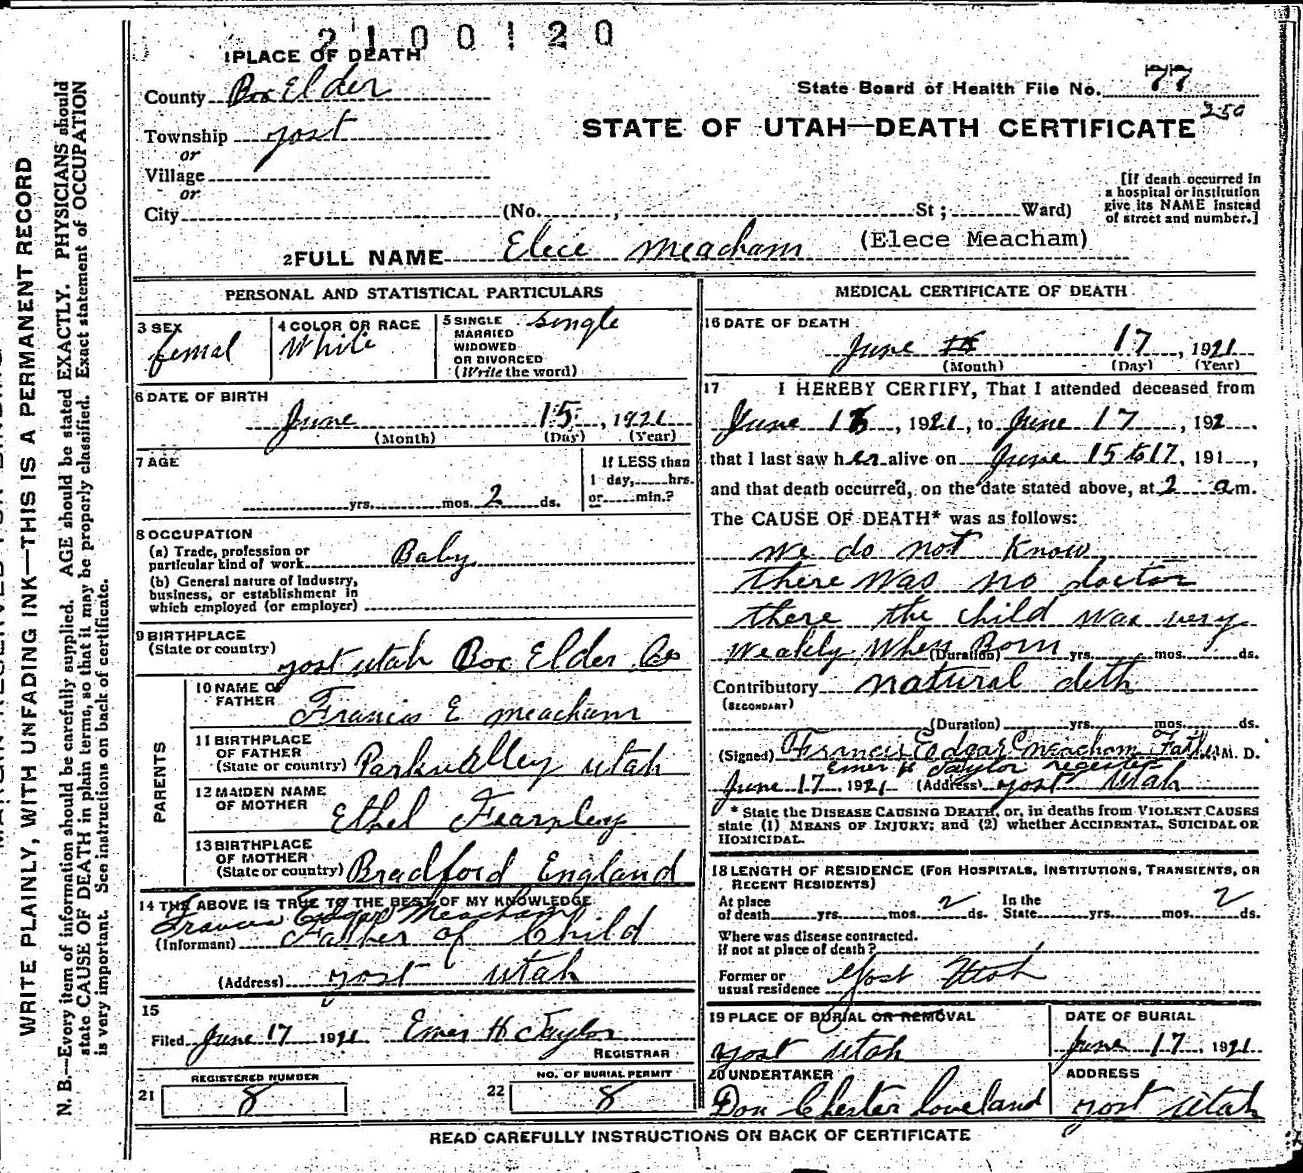 2100120
1 PLACE OF DEATH
County Box Elder
State Board of Health File No. 77
250
Township yost
STATE OF UTAH—DEATH CERTIFICATE
or
Village
or
City (No. , St ; Ward)
[If death occurred in
a hospital or institution
give its NAME instead
of street and number.]
2 FULL NAME Elece Meacham (Elece Meacham)
PERSONAL AND STATISTICAL PARTICULARS
3 SEX
femal
4 COLOR OR RACE
White
5 SINGLE
MARRIED
WIDOWED
OR DIVORCED
(Write the word)
single
6 DATE OF BIRTH
June 15, 1921
(Month) (Day) (Year)
7 AGE
yrs. mos. 2 ds.
If LESS than
1 day, hrs.
or min.?
8 OCCUPATION
(a) Trade, profession or
particular kind of work Baby
(b) General nature of Industry,
business, or establishment in
which employed (or employer)
9 BIRTHPLACE
(State or country)
yost utah Box Elder Co
PARENTS
10 NAME OF
FATHER
Francis E meacham
11 BIRTHPLACE
OF FATHER
(State or country) Parkvalley utah
12 MAIDEN NAME
OF MOTHER
Ethel Fearnley
13 BIRTHPLACE
OF MOTHER
(State or country) Bradford England
14 THE ABOVE IS TRUE TO THE BEST OF MY KNOWLEDGE
Francis Edgar Meacham
(Informant) Father of Child
(Address) yost utah
15
Filed June 17 1921 Emer H Taylor
REGISTRAR
21 REGISTERED NUMBER
8
22 NO. OF BURIAL PERMIT
8
MEDICAL CERTIFICATE OF DEATH
16 DATE OF DEATH
June 17, 1921
(Month) (Day) (Year)
17 I HEREBY CERTIFY, That I attended deceased from
June, 1921, to June 17, 192
that I last saw her alive on June 15 to 17, 191 ,
and that death occurred, on the date stated above, at 2 am.
The CAUSE OF DEATH* was as follows:
we do not know
there was no doctor
there the child was very
weakly when Born
(Duration) yrs. mos. ds.
Contributory natural deth
(SECONDARY)
(Duration) yrs. mos. ds.
(Signed) Francis Edgar Meacham Father, M. D.
Emer H Taylor register
June 17 1921 (Address) yost utah
* State the DISEASE CAUSING DEATH, or, in deaths from VIOLENT CAUSES
state (1) MEANS OF INJURY; and (2) whether ACCIDENTAL, SUICIDAL OR
HOMICIDAL.
18 LENGTH OF RESIDENCE (FOR HOSPITALS, INSTITUTIONS, TRANSIENTS, OR
RECENT RESIDENTS)
At place
of death yrs. mos. 2 ds.
In the
State yrs. mos. 2 ds.
Where was disease contracted.
if not at place of death?
Former or
usual residence Yost Utah
19 PLACE OF BURIAL OR REMOVAL
yost utah
DATE OF BURIAL
June 17, 1921
20 UNDERTAKER
Don Chester Loveland
ADDRESS
yost utah
READ CAREFULLY INSTRUCTIONS ON BACK OF CERTIFICATE
WRITE PLAINLY, WITH UNFADING INK—THIS IS A PERMANENT RECORD
N. B.—Every item of information should be carefully supplied. AGE should be stated EXACTLY. PHYSICIANS should
state CAUSE OF DEATH in plain terms, so that it may be properly classified. Exact statement of OCCUPATION
is very important. See instructions on back of certificate.